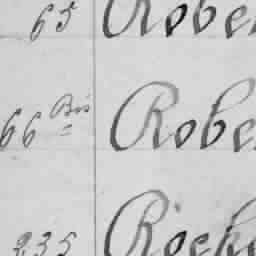 65 Rober
66 Bis Rober
235 Roche